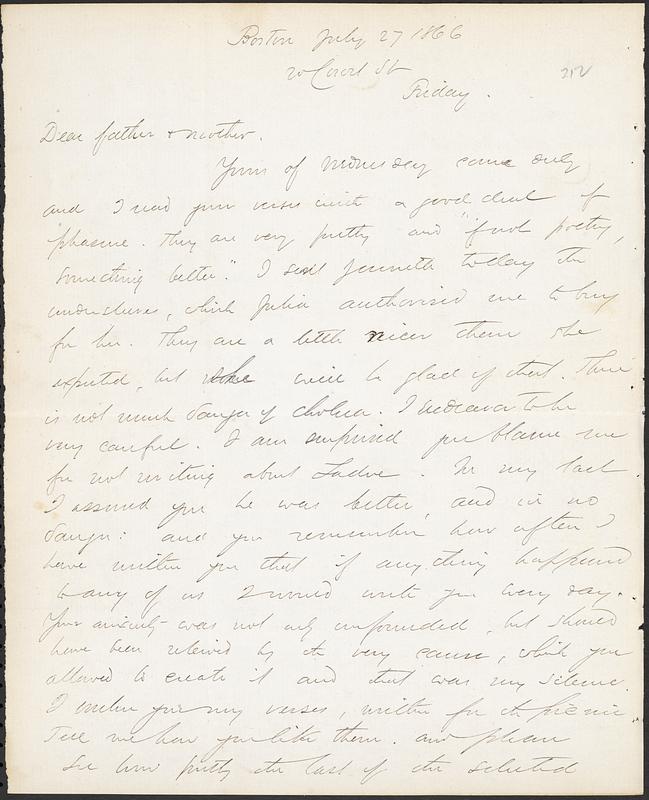 Boston July 27 1866
20 Court St
212
Friday.
Dear father & mother.
Yours of Wednesday came duly
and I read your verses with a good deal of
pleasure. They are very pretty and "if not poetry,
something better." I sent Jennette today the
undersleeves, which Julia authorised me to buy
for her. They are a little nicer than she
expected, but she will be glad of that. There
is not much danger of cholera. I endeavor to be
very careful. I am surprised you blame me
for not writing about. In my last
I assured you he was better, and in no
danger: and you remember how often I
have written you that if any thing happened
to any of us I would write you every day.
Your anxiety was not only unfounded, but should
have been relieved by the very cause, which you
allowed to create it and that was my silence.
I enclose you my verses, written for the picnic.
Tell me how you like them. and please
see how pretty the last of the selected